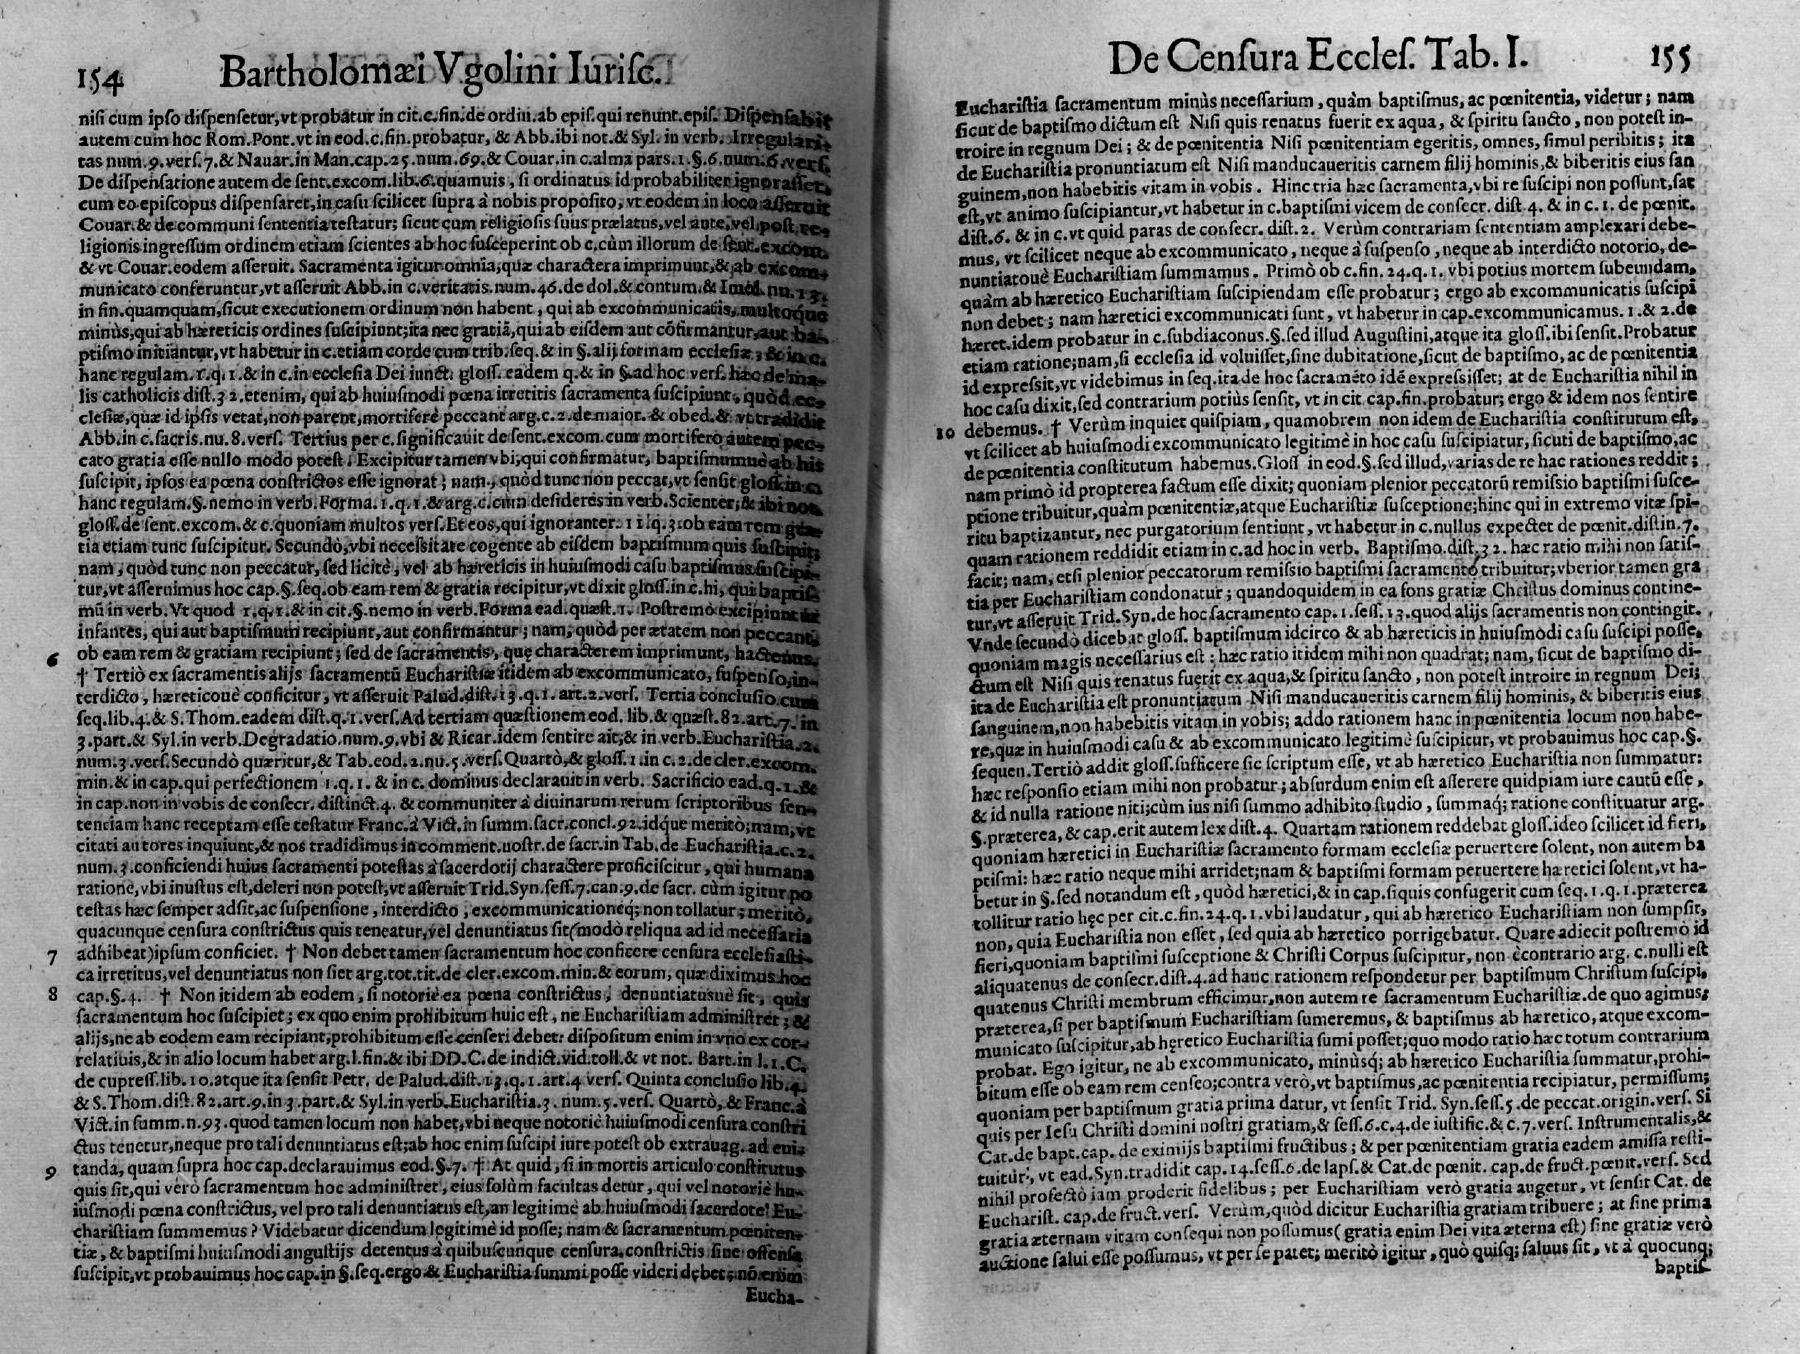 154 Bartholomæi Vgolini Iurisc.
nisi cum ipso dispensetur, vt probatur in cit.c.fin.de ordin.ab epis.qui renunt.epis. Dispensabit
autem cum hoc Rom. Pont. vt in eod.c.fin.probatur, & Abb.ibi not.& Syl. in verb. Irregulari-
tas num.9. vers.7.& Nauar.in Man.cap.25.num.69.& Couar.in c.alma pars.1.§.6.num.6.vers.
De dispensatione autem de sent.excom.lib.6.quamuis, si ordinatus id probabiliter ignorasset,
cum eo episcopus dispensaret, in casu scilicet supra à nobis proposito, vt eodem in loco asseruit
Couar.& de communi sententia testatur; sicut cum religiosis suus prælatus, vel ante, vel post re-
ligionis ingressum ordinem etiam scientes ab hoc susceperint ob c.cùm illorum de sent.excom.
& vt Couar.eodem asseruit. Sacramenta igitur omnia, quæ charactera imprimunt, & ab excom-
municato conferuntur, vt asseruit Abb.in c.veritatis.num.46.de dol.& contum.& Imol.nu.13.
in fin.quamquam, sicut executionem ordinum non habent, qui ab excommunicatis, multoque
minùs, qui ab hæreticis ordines suscipiunt; ita nec gratiã, qui ab eisdem aut cõfirmantur, aut ba-
ptismo initiantur, vt habetur in c.etiam corde cum trib.seq.& in §.alij formam ecclesiæ; & in c.
hanc regulam.1.q.1.& in c.in ecclesia Dei iunct. gloss. eadem q.& in §.ad hoc vers. hæc de ma-
lis catholicis dist.32.etenim, qui ab huiusmodi pœna irretitis sacramenta suscipiunt, quòd ec-
clesiæ, quæ id ipsis vetat, non parent, mortiferè peccant arg.c.2.de maior. & obed.& vt tradidit
Abb.in c.sacris.nu.8.vers. Tertius per c.significauit de sent.excom.cum mortifero autem pec-
cato gratia esse nullo modo potest. Excipitur tamen vbi, qui confirmatur, baptismumuè ab his
suscipit, ipsos ea pœna constrictos esse ignorat; nam, quòd tunc non peccat, vt sensit gloss.in c.
hanc regulam.§.nemo in verb. Forma. 1.q.1.& arg.c.cùm desideres in verb.Scienter, & ibi not.
gloss.de sent.excom.& c.quoniam multos vers.Et eos, qui ignoranter. 11.q.3.ob eam rem gra-
tia etiam tunc suscipitur. Secundò, vbi necessitate cogente ab eisdem baptismum quis suscipit;
nam, quòd tunc non peccatur, sed licitè, vel ab hæreticis in huiusmodi casu baptismus suscipi-
tur, vt asseruimus hoc cap.§.seq.ob eam rem & gratia recipitur, vt dixit gloss.in c.hi, qui baptis-
mũ in verb. Vt quod 1.q.1.& in cit.§.nemo in verb. Forma ead.quæst.1. Postremò excipiuntur
infantes, qui aut baptismum recipiunt, aut confirmantur; nam, quòd per ætatem non peccant,
6 ob eam rem & gratiam recipiunt; sed de sacramentis, quę characterem imprimunt, hactenus.
† Tertiò ex sacramentis alijs sacramentũ Eucharistiæ itidem ab excommunicato, suspenso, in-
terdicto, hæreticouè conficitur, vt asseruit Palud.dist.13.q.1. art.2.vers. Tertia conclusio cum
seq.lib.4.& S.Thom.eadem dist.q.1.vers.Ad tertiam quæstionem eod. lib.& quæst.82.art.7. in
3.part.& Syl.in verb.Degradatio.num.9.vbi & Ricar.idem sentire ait, & in verb.Eucharistia.2.
num.3.vers.Secundò quæritur, & Tab.eod.2.nu.5.vers.Quartò, & gloss.1.in c.2.de cler.excom.
min.& in cap.qui perfectionem 1.q.1. & in c. dominus declarauit in verb. Sacrificio ead.q.1.&
in cap.non in vobis de consecr. distinct.4. & communiter à diuinarum rerum scriptoribus sen-
tentiam hanc receptam esse testatur Franc.à Vict.in summ.sacr.concl.92.idq́ue meritò; nam, vt
citati autores inquiunt, & nos tradidimus in comment.nostr.de sacr.in Tab.de Eucharistia.c.2.
num.3.conficiendi huius sacramenti potestas à sacerdotij charactere proficiscitur, qui humana
ratione, vbi inustus est, deleri non potest, vt asseruit Trid.Syn.sess.7.can.9.de sacr. cùm igitur po
testas hæc semper adsit, ac suspensione, interdicto, excommunicationeq́; non tollatur; meritò,
quacunque censura constrictus quis teneatur, vel denuntiatus sit (modò reliqua ad id necessaria
7 adhibeat) ipsum conficiet. † Non debet tamen sacramentum hoc conficere censura ecclesiasti-
ca irretitus, vel denuntiatus non siet arg.tot.tit.de cler.excom.min.& eorum, quæ diximus hoc
8 cap.§.4. † Non itidem ab eodem, si notoriè ea pœna constrictus, denuntiatusuè sit, quis
sacramentum hoc suscipiet; ex quo enim prohibitum huic est, ne Eucharistiam administret; &
alijs, ne ab eodem eam recipiant, prohibitum esse censeri debet: dispositum enim in vno ex cor-
relatiuis, & in alio locum habet arg.l.fin.& ibi DD.C.de indict.vid.toll.& vt not. Bart.in l.1.C.
de cupress.lib.10.atque ita sensit Petr. de Palud.dist.13.q.1.art.4 vers. Quinta conclusio lib.4.
& S.Thom.dist.82.art.9.in 3.part.& Syl.in verb.Eucharistia.3. num.5.vers. Quartò, & Franc.à
Vict.in summ.n.93.quod tamen locum non habet, vbi neque notoriè huiusmodi censura constri
ctus tenetur, neque pro tali denuntiatus est; ab hoc enim suscipi iure potest ob extrauag. ad eui-
9 tanda, quam supra hoc cap.declarauimus eod.§.7. † At quid, si in mortis articulo constitutus
quis sit, qui verò sacramentum hoc administret, eius solùm facultas detur, qui vel notoriè hu-
iusmodi pœna constrictus, vel pro tali denuntiatus est, an legitimè ab huiusmodi sacerdote Eu-
charistiam summemus? Videbatur dicendum legitimè id posse; nam & sacramentum pœniten-
tiæ, & baptismi huiusmodi angustijs detentus à quibuscunque censura constrictis sine offensa
suscipit, vt probauimus hoc cap.in §.seq.ergo & Eucharistia summi posse videri dębet; nõ enim
Eucha-
De Censura Eccles. Tab. I. 155
Eucharistia sacramentum minùs necessarium, quàm baptismus, ac pœnitentia, videtur; nam
sicut de baptismo dictum est Nisi quis renatus fuerit ex aqua, & spiritu sancto, non potest in-
troire in regnum Dei; & de pœnitentia Nisi pœnitentiam egeritis, omnes, simul peribitis; ita
de Eucharistia pronuntiatum est Nisi manducaueritis carnem filij hominis, & biberitis eius san
guinem, non habebitis vitam in vobis. Hinc tria hæc sacramenta, vbi re suscipi non possunt, sat
est, vt animo suscipiantur, vt habetur in c.baptismi vicem de consecr. dist 4. & in c. 1. de pœnit.
dist.6. & in c.vt quid paras de consecr. dist.2. Verùm contrariam sententiam amplexari debe-
mus, vt scilicet neque ab excommunicato, neque à suspenso, neque ab interdicto notorio, de-
nuntiatouè Eucharistiam summamus. Primò ob c.fin.24.q.1. vbi potius mortem subeundam,
quàm ab hæretico Eucharistiam suscipiendam esse probatur; ergo ab excommunicatis suscipi
non debet; nam hæretici excommunicati sunt, vt habetur in cap.excommunicamus. 1.& 2.de
hæret.idem probatur in c.subdiaconus.§.sed illud Augustini, atque ita gloss.ibi sensit. Probatur
etiam ratione; nam, si ecclesia id voluisset, sine dubitatione, sicut de baptismo, ac de pœnitentia
id expressit, vt videbimus in seq.ita de hoc sacramẽto idẽ expressisset; at de Eucharistia nihil in
hoc casu dixit, sed contrarium potiùs sensit, vt in cit cap.fin.probatur; ergo & idem nos sentire
10 debemus. † Verùm inquiet quispiam, quamobrem non idem de Eucharistia constitutum est,
vt scilicet ab huiusmodi excommunicato legitimè in hoc casu suscipiatur, sicuti de baptismo, ac
de pœnitentia constitutum habemus. Gloss in eod.§.sed illud, varias de re hac rationes reddit;
nam primò id propterea factum esse dixit; quoniam plenior peccatorũ remissio baptismi susce-
ptione tribuitur, quàm pœnitentiæ, atque Eucharistiæ susceptione; hinc qui in extremo vitæ spi-
ritu baptizantur, nec purgatorium sentiunt, vt habetur in c.nullus expectet de pœnit.distin.7.
quam rationem reddidit etiam in c.ad hoc in verb. Baptismo.dist.32. hæc ratio mihi non satis-
facit; nam, etsi plenior peccatorum remissio baptismi sacramento tribuitur; vberior tamen gra
tia per Eucharistiam condonatur; quandoquidem in ea fons gratiæ Christus dominus contine-
tur, vt asseruit Trid.Syn.de hoc sacramento cap.1.sess.13.quod alijs sacramentis non contingit.
Vnde secundò dicebat gloss. baptismum idcirco & ab hæreticis in huiusmodi casu suscipi posse,
quoniam magis necessarius est: hæc ratio itidem mihi non quadrat; nam, sicut de baptismo di-
ctum est Nisi quis renatus fuerit ex aqua, & spiritu sancto, non potest introire in regnum Dei;
ita de Eucharistia est pronuntiatum Nisi manducaueritis carnem filij hominis, & biberitis eius
sanguinem, non habebitis vitam in vobis; addo rationem hanc in pœnitentia locum non habe-
re, quæ in huiusmodi casu & ab excommunicato legitimè suscipitur, vt probauimus hoc cap.§.
sequen. Tertiò addit gloss.sufficere sic scriptum esse, vt ab hæretico Eucharistia non summatur:
hæc responsio etiam mihi non probatur; absurdum enim est asserere quidpiam iure cautũ esse,
& id nulla ratione niti; cùm ius nisi summo adhibito studio, summaq́; ratione constituatur arg.
§.præterea, & cap.erit autem lex dist.4. Quartam rationem reddebat gloss.ideo scilicet id fieri,
quoniam hæretici in Eucharistiæ sacramento formam ecclesiæ peruertere solent, non autem ba
ptismi: hæc ratio neque mihi arridet; nam & baptismi formam peruertere hæretici solent, vt ha-
betur in §.sed notandum est, quòd hæretici, & in cap.siquis confugerit cum seq. 1.q.1.præterea
tollitur ratio hęc per cit.c.fin.24.q.1.vbi laudatur, qui ab hæretico Eucharistiam non sumpsit,
non, quia Eucharistia non esset, sed quia ab hæretico porrigebatur. Quare adiecit postremò id
fieri, quoniam baptismi susceptione & Christi Corpus suscipitur, non ècontrario arg. c.nulli est
aliquatenus de consecr.dist.4.ad hanc rationem respondetur per baptismum Christum suscipi,
quatenus Christi membrum efficimur, non autem re sacramentum Eucharistiæ.de quo agimus;
præterea, si per baptismum Eucharistiam sumeremus, & baptismus ab hæretico, atque excom-
municato suscipitur, ab hęretico Eucharistia sumi posset; quo modo ratio hæc totum contrarium
probat. Ego igitur, ne ab excommunicato, minùsq́; ab hæretico Eucharistia summatur, prohi-
bitum esse ob eam rem censeo; contra verò, vt baptismus, ac pœnitentia recipiatur, permissum;
quoniam per baptismum gratia prima datur, vt sensit Trid. Syn.sess.5.de peccat.origin.vers. Si
quis per Iesu Christi domini nostri gratiam, & sess.6.c.4.de iustific.& c.7.vers. Instrumentalis, &
Cat.de bapt.cap. de eximijs baptismi fructibus; & per pœnitentiam gratia eadem amissa resti-
tuitur, vt ead.Syn.tradidit cap.14.sess.6.de laps.& Cat.de pœnit. cap.de fruct.pœnit.vers. Sed
nihil profectò iam proderit fidelibus; per Eucharistiam verò gratia augetur, vt sensit Cat. de
Eucharist. cap.de fruct.vers. Verùm, quòd dicitur Eucharistia gratiam tribuere; at sine prima
gratia æternam vitam consequi non possumus (gratia enim Dei vita æterna est) sine gratiæ verò
auctione salui esse possumus, vt per se patet; meritò igitur, quò quisq; saluus sit, vt à quocunq;
baptis-